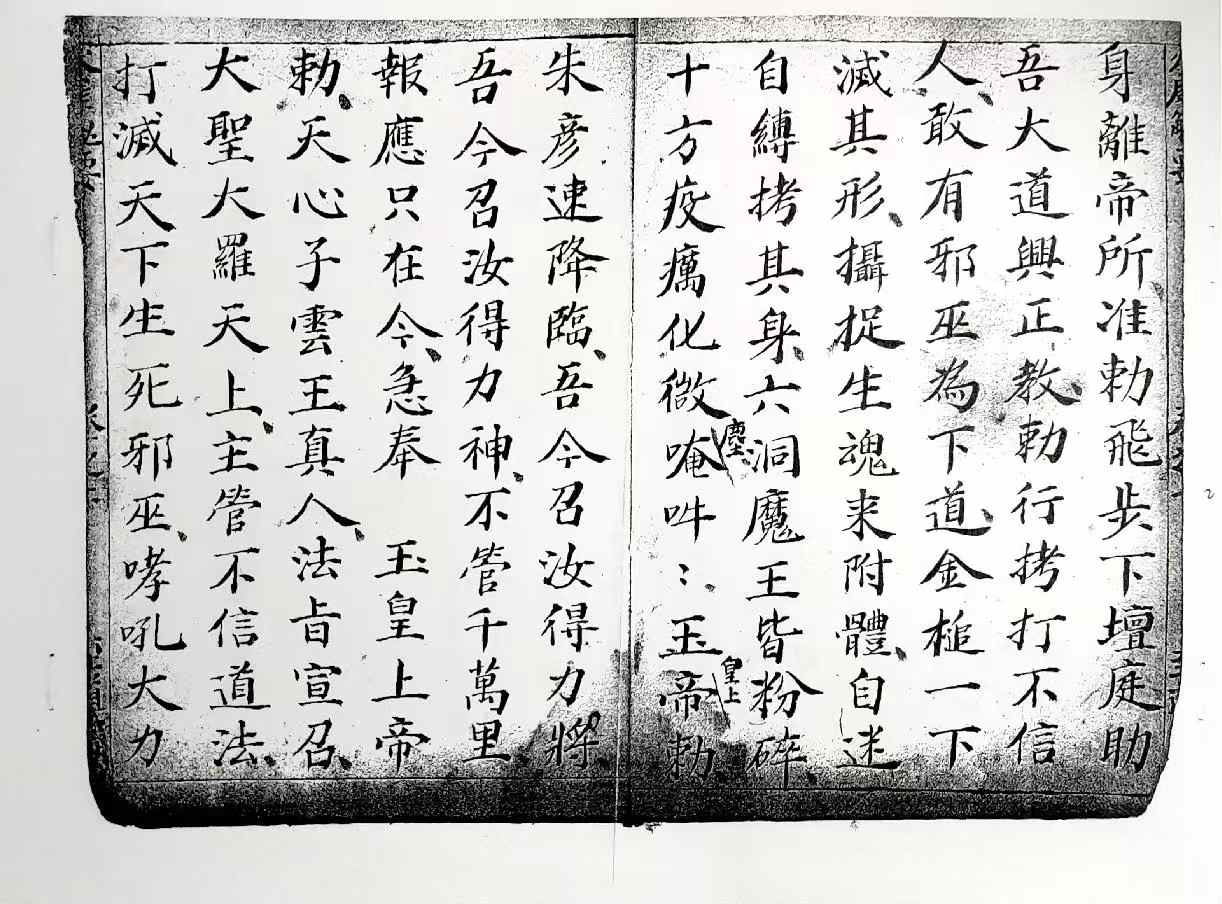 身離帝所准勅飛步下壇庭助
吾大道興正教勅行拷打不信
人敢有邪巫為下道金槌一下
滅其形攝捉生魂来附體自迷
自縛拷其身六洞魔王皆粉碎
十方疫癘化微塵唵吽⺀玉皇上帝勅
朱彦速降臨吾今召汝得力將
吾今召汝得力神不管千萬里
報應只在今急奉　玉皇上帝
勅天心子雲王真人法旨宣召
大聖大羅天上主管不信道法
打滅天下生死邪巫哮吼大力